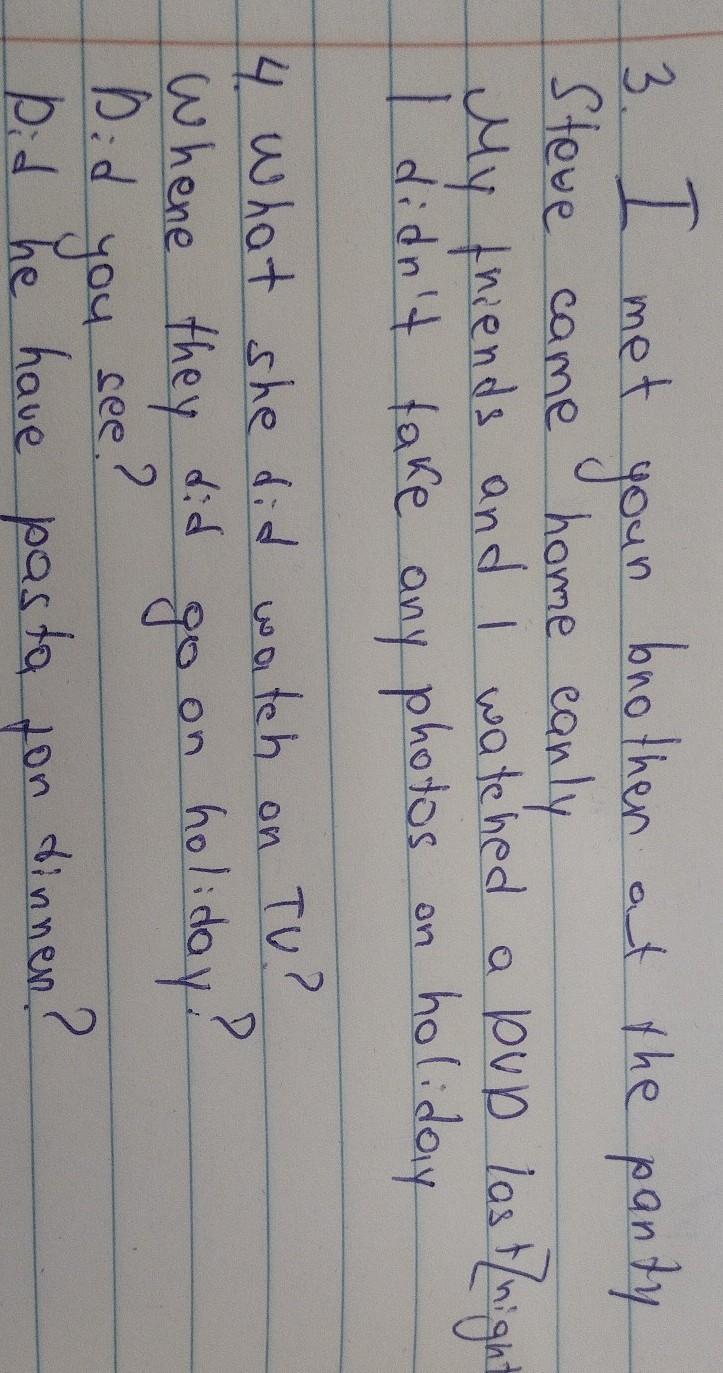 3. I met your brother at the party
Steve came home early
My friends and I watched a DVD last night
I didn't take any photos on holiday
4. What she did watch on TV?
Where they did go on holiday?
Did you see?
Did he have pasta for dinner?